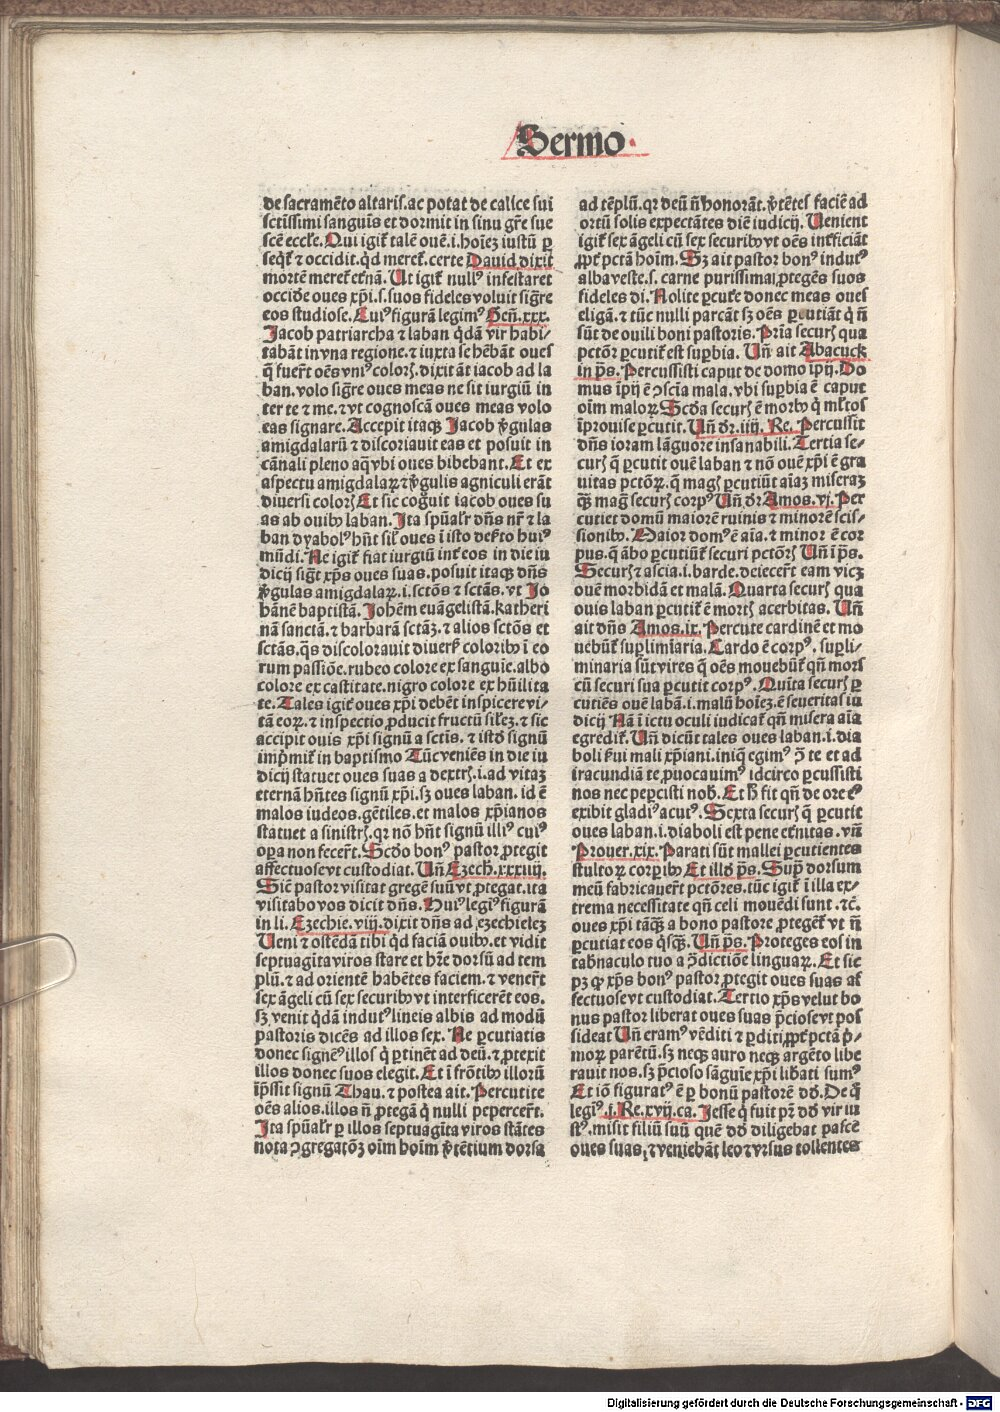 Sermo.
de sacramēto altaris. ac potat de calice sui
sctissimi sanguīs et dormit in sinu gr̄e sue
scē eccłe. Qui igiť talē ouē .i. hoīeꝫ iustū ꝑ
seqť ⁊ occidit. qd̄ mereť. certe Dauid dixit
mortē mereť eťnā. Ut igiť nullꝰ infestaret
occiđe oues xp̄i .s. suos fideles voluit sigr̄e
eos studiose. Cuiꝰ figurā legimꝰ Gen̄. xxx.
Jacob patriarcha ⁊ laban qđā vir habi-
tabāt in vna regione. ⁊ iuxta se hēbāt oues
q̄ fuer̄t oēs vniꝰ colorꝭ. dixit āt iacob ad la
ban. volo sigr̄e oues meas ne sit iurgiū in
ter te ⁊ me. ⁊ vt cognoscā oues meas volo
eas signare. Accepit itaqꝫ Jacob v̓gulas
amigdalarū ⁊ discoriauit eas et posuit in
cānali pleno aq̄ vbi oues bibebant. Et ex
aspectu amigdalaꝝ ⁊ v̓gulis agniculi erāt
diuersi colorꝭ Et sic cog̅uit iacob oues su
as ab ouibꝰ laban. Ita sp̄ualr̄ dn̄s nr̄ ⁊ la
ban dyabolꝰ hn̄t sił oues ī isto deſťto huiꝰ
mūdi. Ne igiť fiat iurgiū inť eos in die iu
dicij sigt̄ xp̄s oues suas. posuit itaqꝫ dn̄s
v̓gulas amigdalaꝝ .i. sctōs ⁊ sctās. vt Jo
hānē baptistā. Johēm euāgelistā. katheri
nā sanctā. ⁊ barbarā sctāꝫ. ⁊ alios sctōs et
sctās. qs̄ discolorauit diuersꝭ coloribꝰ ī eo
rum passiōe. rubeo colore ex sanguīe. albo
colore ex castitate. nigro colore ex hūilita
te. Tales igiť oues xp̄i debēt inspicere vi-
tā eoꝝ. ⁊ inspectio ꝓducit fructū siłeꝫ. ⁊ sic
accipit ouis xp̄i signū a sctīs. ⁊ istđ signū
imp̄miť in baptismo Tūc veniēs in die iu
dicij statuet oues suas a dextrꝭ .i. ad vitaꝫ
eternā hn̄tes signū xp̄i. sꝫ oues laban. id ē
malos iudeos. gētiles. et malos xp̄ianos
statuet a sinistrꝭ. qr nō hn̄t signū illiꝰ cuiꝰ
oꝑa non fecer̄t. Scđo bonꝰ pastor ꝓtegit
affectuose vt custodiat. Un̄ Ezech. xxxiiij.
Sic̄ pastor visitat gregē suū vt ꝓtegat. ita
visitabo vos dicit dn̄s. Huiꝰ legiꝰ figurā
in li. Ezechie. viij. dixit dn̄s ad ezechieleꝫ
Veni ⁊ ostēdā tibi qd̄ faciā ouibꝰ. et vidit
septuagīta viros stare et hr̄e dorsū ad tem
plū. ⁊ ad orientē habētes faciem. ⁊ vener̄t
sex āgeli cū sex securibꝰ vt interficerēt eos.
sꝫ venit qđā indutꝰ lineis albis ad modū
pastoris dicēs ad illos sex. Ne ꝑcutiatis
donec signēꝰ illos q̄ ꝑtinēt ad deū. ⁊ ꝓtexit
illos donec suos elegit. Et ī frōtibꝰ illorū
īp̄ssit signū Thau. ⁊ postea ait. Percutite
oēs alios. illos n̄ ꝓtegā q̄ nulli pepercer̄t.
Ita sp̄ualr̄ ꝑ illos septuagīta viros stātes
nota ꝯgregatōꝫ oīm hoīm v̓tētium dorsa
ad tēplū. qr deū n̄ honorāt. v̓tētes faciē ad
ortū solis expectātes diē iudicij. Venient
igiť sex āgeli cū sex securibꝰ vt oēs inťficiāt
ꝓpť pctā hoīm. Sꝫ ait pastor bonꝰ indutꝰ
alba veste .s. carne purissima ꝓtegēs suos
fideles di. Nolite ꝑcuťe donec meas oues
eligā. ⁊ tūc nulli parcāt sꝫ oēs ꝑcutiāt q̄ n̄
sūt de ouili boni pastoris. Pr̄ia securꝭ qua
pctōꝝ ꝑcutiť est suꝑbia. Un̄ ait Abacuck
in p̄s. Percussisti caput de domo īpij. Do
mus īpij ē ꝯsciā mala. vbi suꝑbia ē caput
oīm maloꝝ. Scđa securꝭ ē morbꝰ q̄ mltos
īprouise ꝑcutit. Un̄ dr̄. iiij. Re. Percussit
dn̄s ioram lāguore insanabili. Tertia se-
curꝭ q̄ ꝑcutit ouē laban ⁊ nō ouē xp̄i ē gra
uitas pctōꝝ. q̄ magꝭ ꝑcutiūt aīaꝫ miseraꝫ
qꝫ mag̅ securꝭ corpꝰ Un̄ dr̄ Amos. vj. Per
cutiet domū maiorē ruinis ⁊ minorē scis-
sionibꝰ. Maior domꝰ ē aīa. ⁊ minor ē cor
pus. q̄ ābo ꝑcutiūť securi pctōrꝭ Un̄ ī p̄s.
Securꝭ ⁊ ascia .i. barde. deiecer̄t eam vicꝫ
ouē morbidā et malā. Quarta securꝭ qua
ouis laban ꝑcutiť ē mortꝭ acerbitas. Un̄
ait dn̄s Amos. ix. Percute cardinē et mo
uebūť supliminaria. Cardo ē corpꝰ. supli-
minaria sūt vires q̄ oēs mouebūť qn̄ mors
cū securi sua ꝑcutit corpꝰ. Quīta securꝭ ꝑ
cutiēs ouē labā .i. malū hoīeꝫ. ē seueritas iu
dicij Nā ī ictu oculi iudicať qn̄ misera aīa
egrediť. Un̄ dicūt tales oues laban .i. dia
boli s̓ui mali xp̄iani. iniq̄ egimꝰ ꝯ̄ te et ad
iracundiā te ꝓuocauimꝰ idcirco ꝑcussisti
nos nec peꝑcisti nob̄. Et h̄ fit qn̄ de ore eꝰ
exibit gladiꝰ acutꝰ. Sexta securꝭ q̄ ꝑcutit
oues laban .i. diaboli est pene eťnitas. vn̄
Prouer. xix. Parati sūt mallei ꝑcutientes
stultoꝝ corꝑibꝰ Et illđ p̄s. Supra dorsum
meū fabricauer̄t pctōres. tūc igiť ī illa ex-
trema necessitate qn̄ celi mouēdi sunt. ⁊c̄.
oues xp̄i tāqꝫ a bono pastore ꝓtegēť vt n̄
ꝑcutiat eos q̄sqꝫ. Un̄ p̄s. Proteges eos in
tab̓naculo tuo a ꝯ̄dictiōe linguaꝝ. Et sic
pꝫ qꝫ xp̄s bonꝰ pastor ꝓtegit oues suas af
fectuose vt custodiat. Tertio xp̄s velut bo
nus pastor liberat oues suas p̄ciose vt pos
sideat Un̄ eramꝰ vēditi ⁊ ꝑditi ꝓpť pctā p̄-
moꝝ parētū. sꝫ neqꝫ auro neqꝫ argēto libe
rauit nos. sꝫ p̄cioso sāguīe xp̄i libati sumꝰ
Et iō figuratꝰ ē ꝑ bonū pastorē dđ. De q̄
legiꝰ .j. Re. xvij. ca. Jesse q̄ fuit pr̄ dđ vir iu
stꝰ. misit filiū suū quē dđ diligebat pascē
oues suas. ⁊ veniebāt leo ⁊ vrsus tollentes
Digitalisierung gefördert durch die Deutsche Forschungsgemeinschaft - DFG